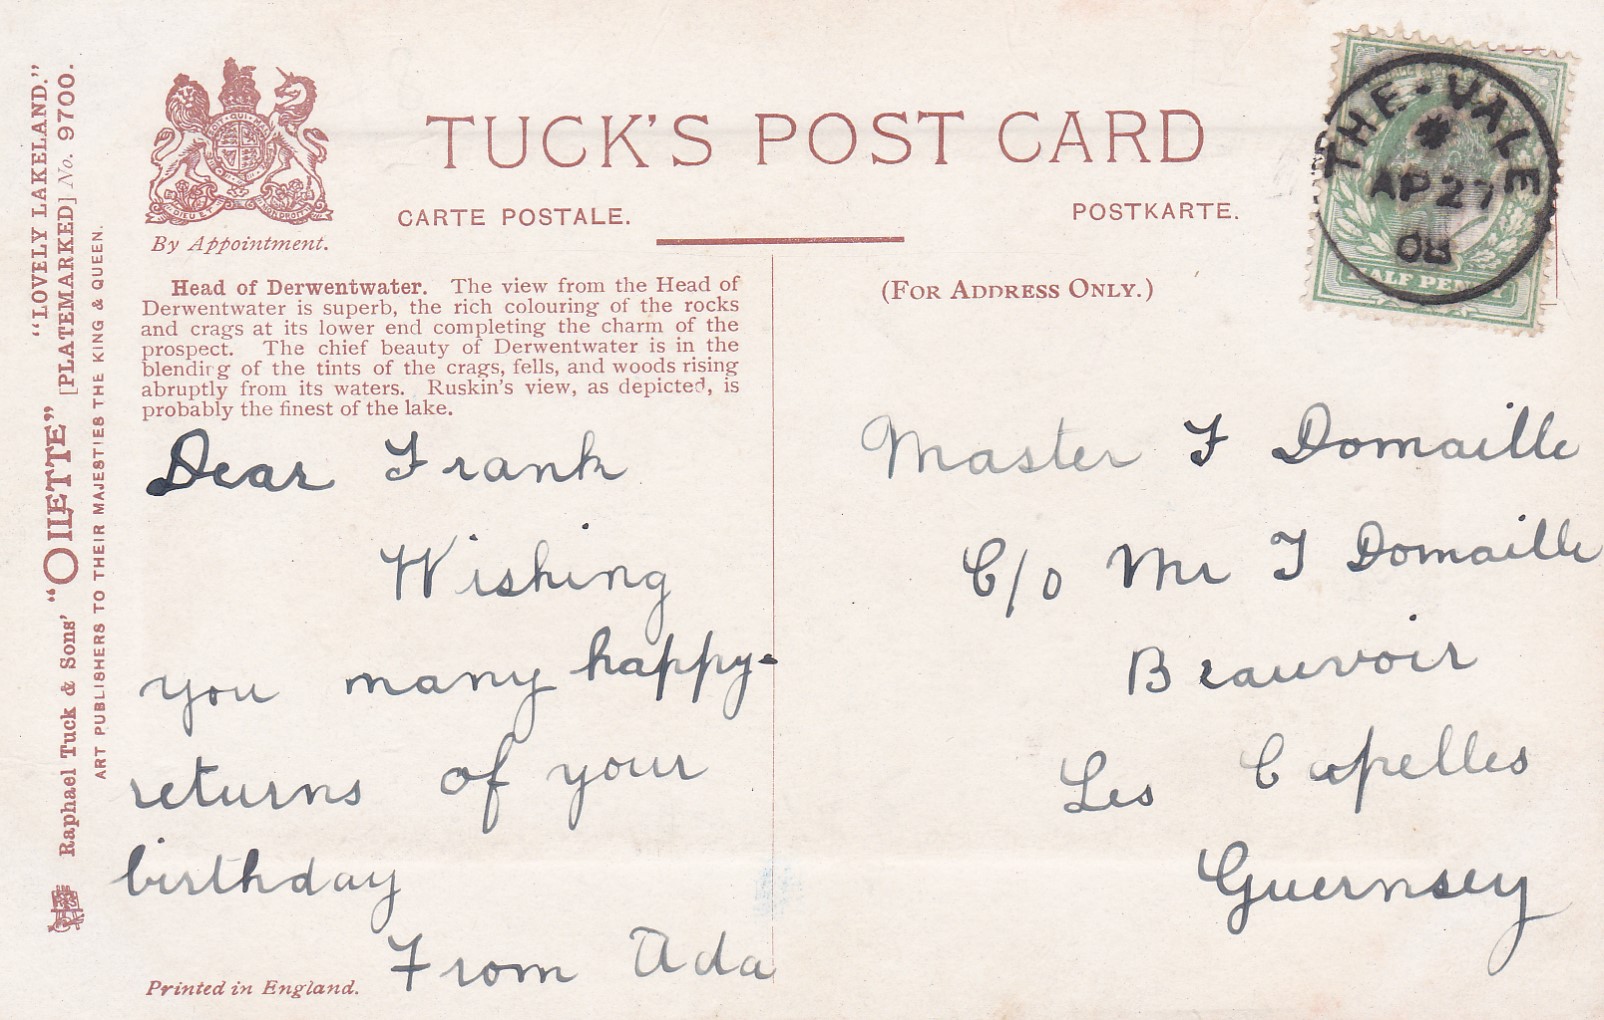 "LOVELY LAKELAND."
Raphael Tuck & Sons' "OILETTE" [PLATEMARKED] No. 9700.
ART PUBLISHERS TO THEIR MAJESTIES THE KING & QUEEN.
By Appointment.
TUCK'S POST CARD
CARTE POSTALE.
POSTKARTE.
Head of Derwentwater. The view from the Head of
Derwentwater is superb, the rich colouring of the rocks
and crags at its lower end completing the charm of the
prospect. The chief beauty of Derwentwater is in the
blending of the tints of the crags, fells, and woods rising
abruptly from its waters. Ruskin's view, as depicted, is
probably the finest of the lake.
Dear Frank
Wishing
you many happy-
returns of your
birthday
From Ada
Printed in England.
(FOR ADDRESS ONLY.)
THE·VALE
AP 27
08
HALF PENNY
Master F Domaille
C/o Mr J Domaille
Beauvoir
Les Capelles
Guernsey